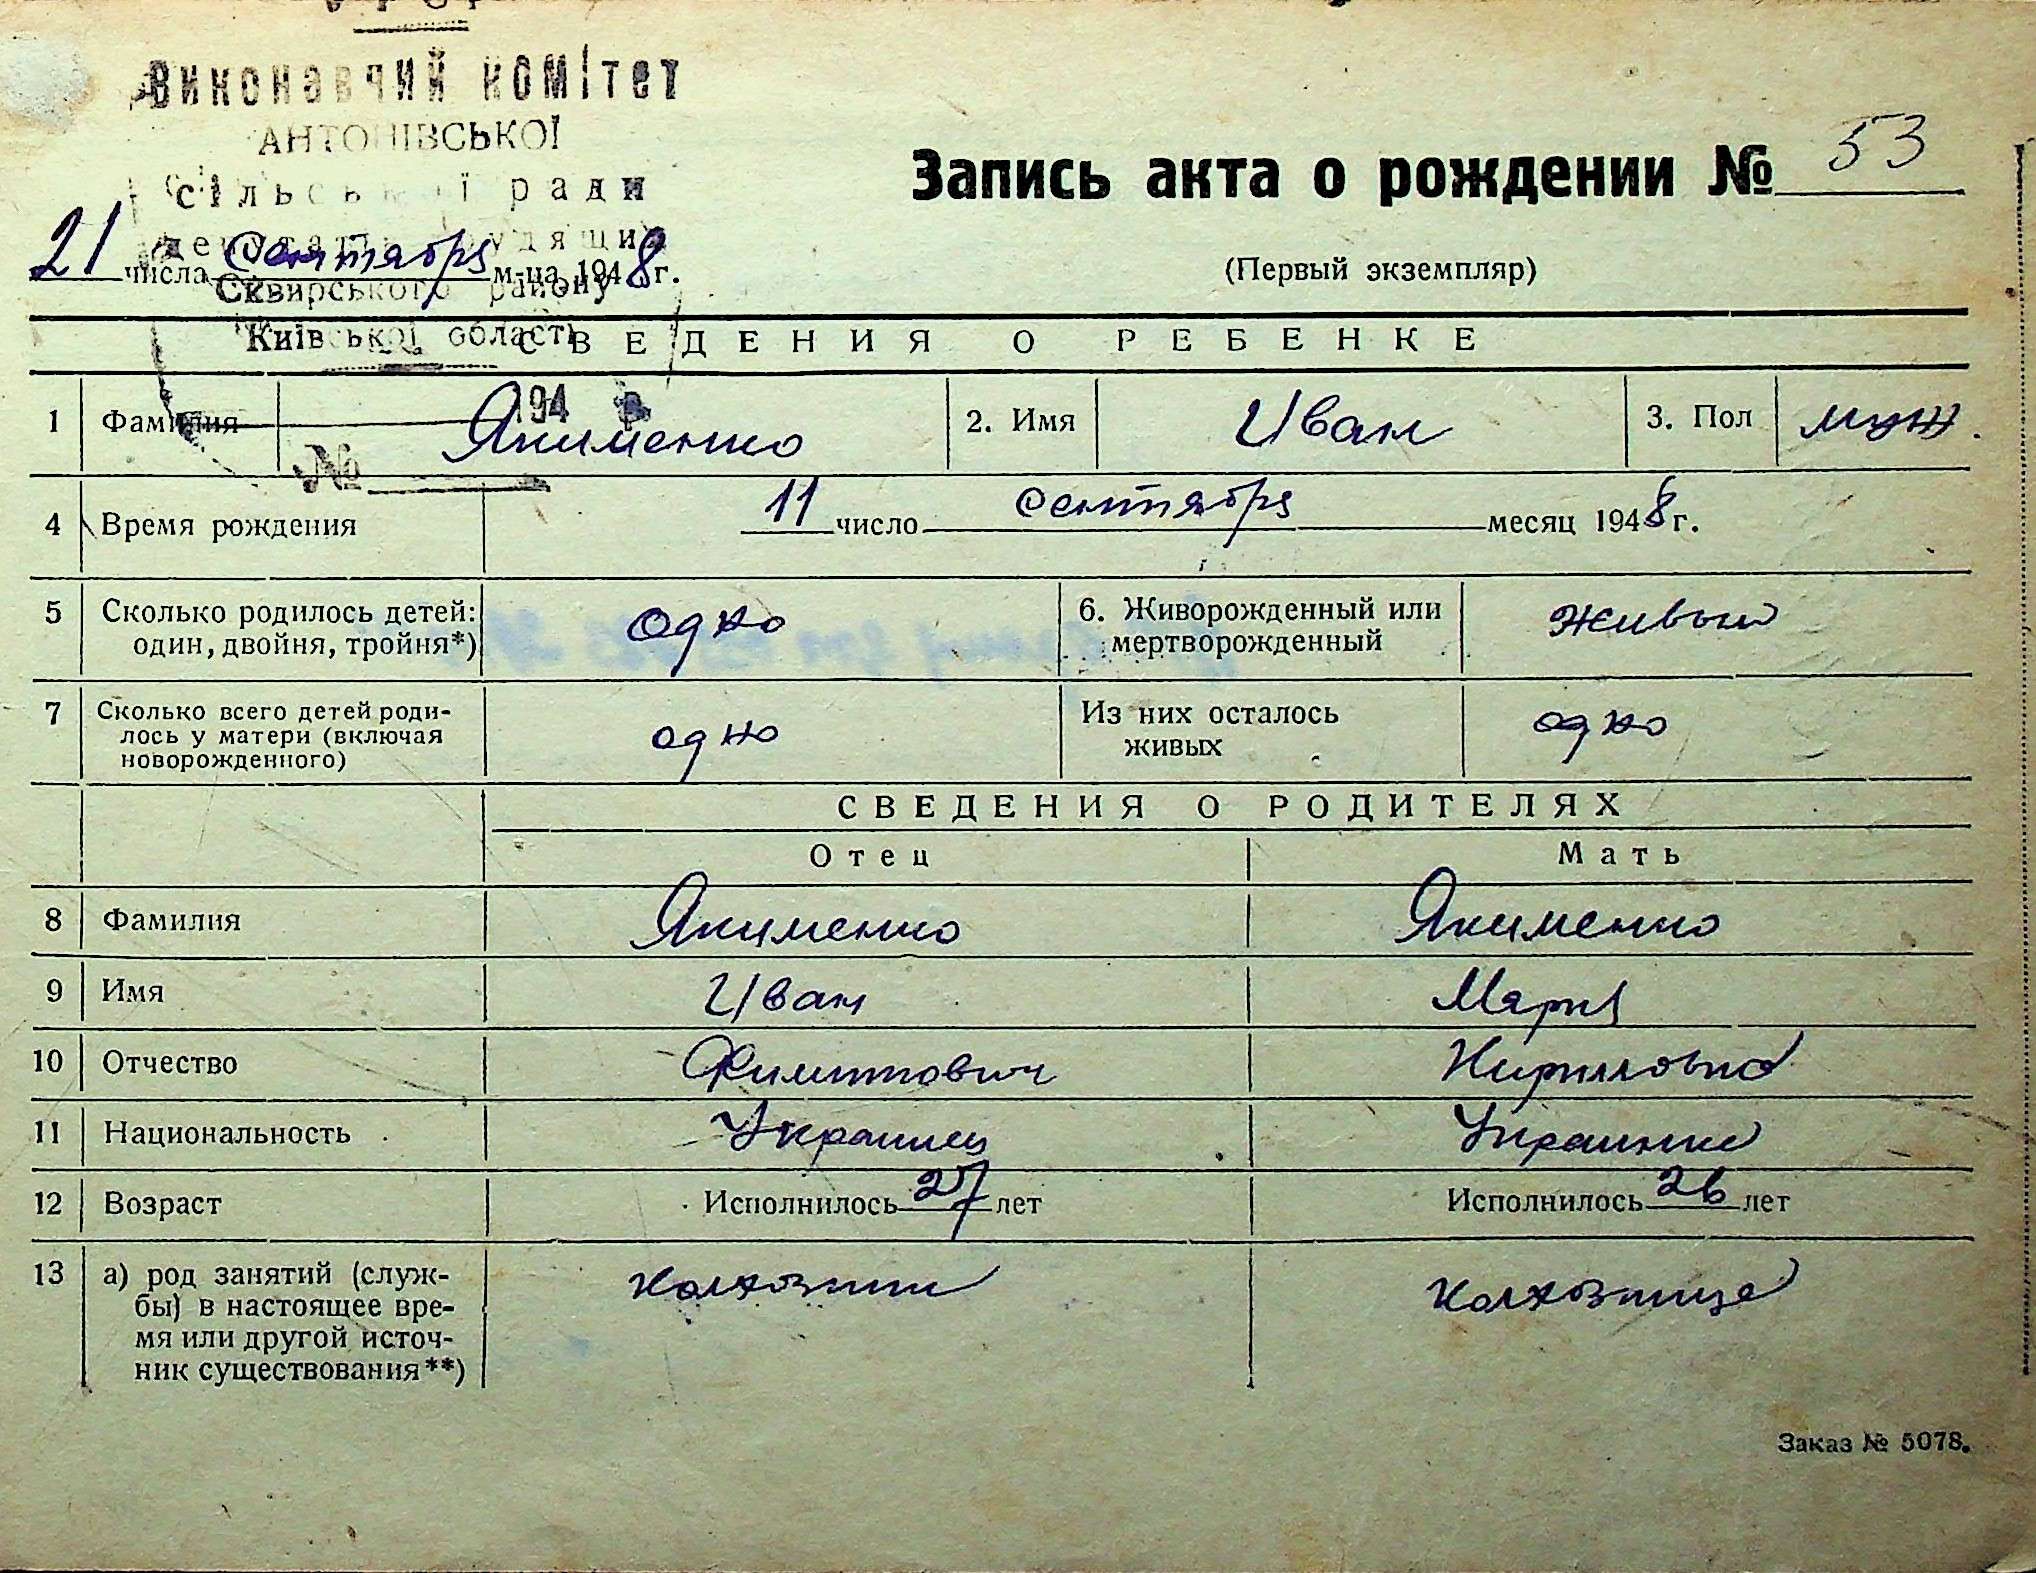 Виконавчий комітет
АНТОНІВСЬКОЇ
сільської ради
депутатів трудящих
Сквирського району
Київської області
194
№
Запись акта о рождении № 53
(Первый экземпляр)
21 числа сентября м-ца 1948 г.
СВЕДЕНИЯ О РЕБЕНКЕ
1 Фамилия Якименко 2. Имя Иван 3. Пол муж.
4 Время рождения 11 число сентября месяц 1948 г.
5 Сколько родилось детей: один, двойня, тройня*) одно 6. Живорожденный или мертворожденный живым
7 Сколько всего детей родилось у матери (включая новорожденного) одно Из них осталось живых одно
СВЕДЕНИЯ О РОДИТЕЛЯХ
Отец Мать
8 Фамилия Якименко Якименко
9 Имя Иван Мария
10 Отчество Филиппович Кирилловна
11 Национальность Украинец Украинка
12 Возраст Исполнилось 27 лет Исполнилось 26 лет
13 а) род занятий (служ-
бы) в настоящее вре-
мя или другой источ-
ник существования**) колхозник колхозница
Заказ № 5078.